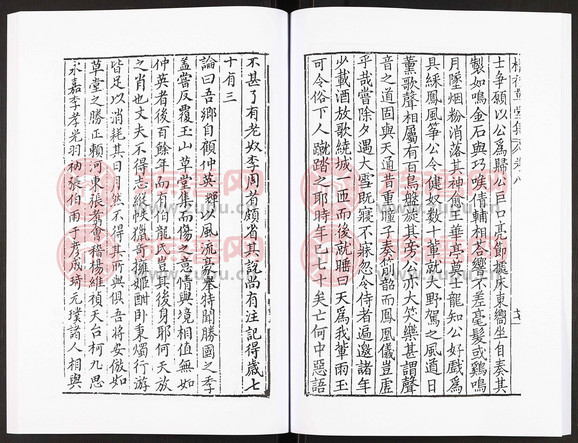 士爭願以公為歸公巨口亮節擬床東嚮坐自奏其
製如鳴金石與巧喉倩輔相荅響不差毫髮或鷄鳴
月墜烟粉消落其神愈王華亭莫士龍知公好戲為
具綵鳳風箏公令健奴數十輩就大野駕之風道日
薰歌聲相屬有百鳥盤旋其旁公亦大笑樂甚謂聲
音之道固與天通昔重瞳子奏簫韶而鳳凰儀豈虛
乎哉嘗除夕遇大雪既寢不寐忽令侍者遍邀諸年
少載酒放歌繞城一匝而後就睡曰天為我輩雨玉
可令俗下人蹴踏之耶時年已七十矣亡何中惡語
不甚了有老奴李周者頗省其說尚有注記得歲七
十有三
論曰吾鄉自顧仲英輩以風流豪舉特聞勝國之季
蓋嘗反覆玉山草堂集而傷之意情與境相值無如
仲英者後百餘年而有伯龍氏豈其後身耶何天放
之肖也丈夫不得志縱帙獵奇擁姬酣臥秉燭行游
皆足以消耗其日月然不得其所與俱吾將安倣如
草堂之勝正賴河東張翥會稽楊維禎天台柯九思
永嘉李孝光羽衲張伯雨于彥成琦元璞諸人相與